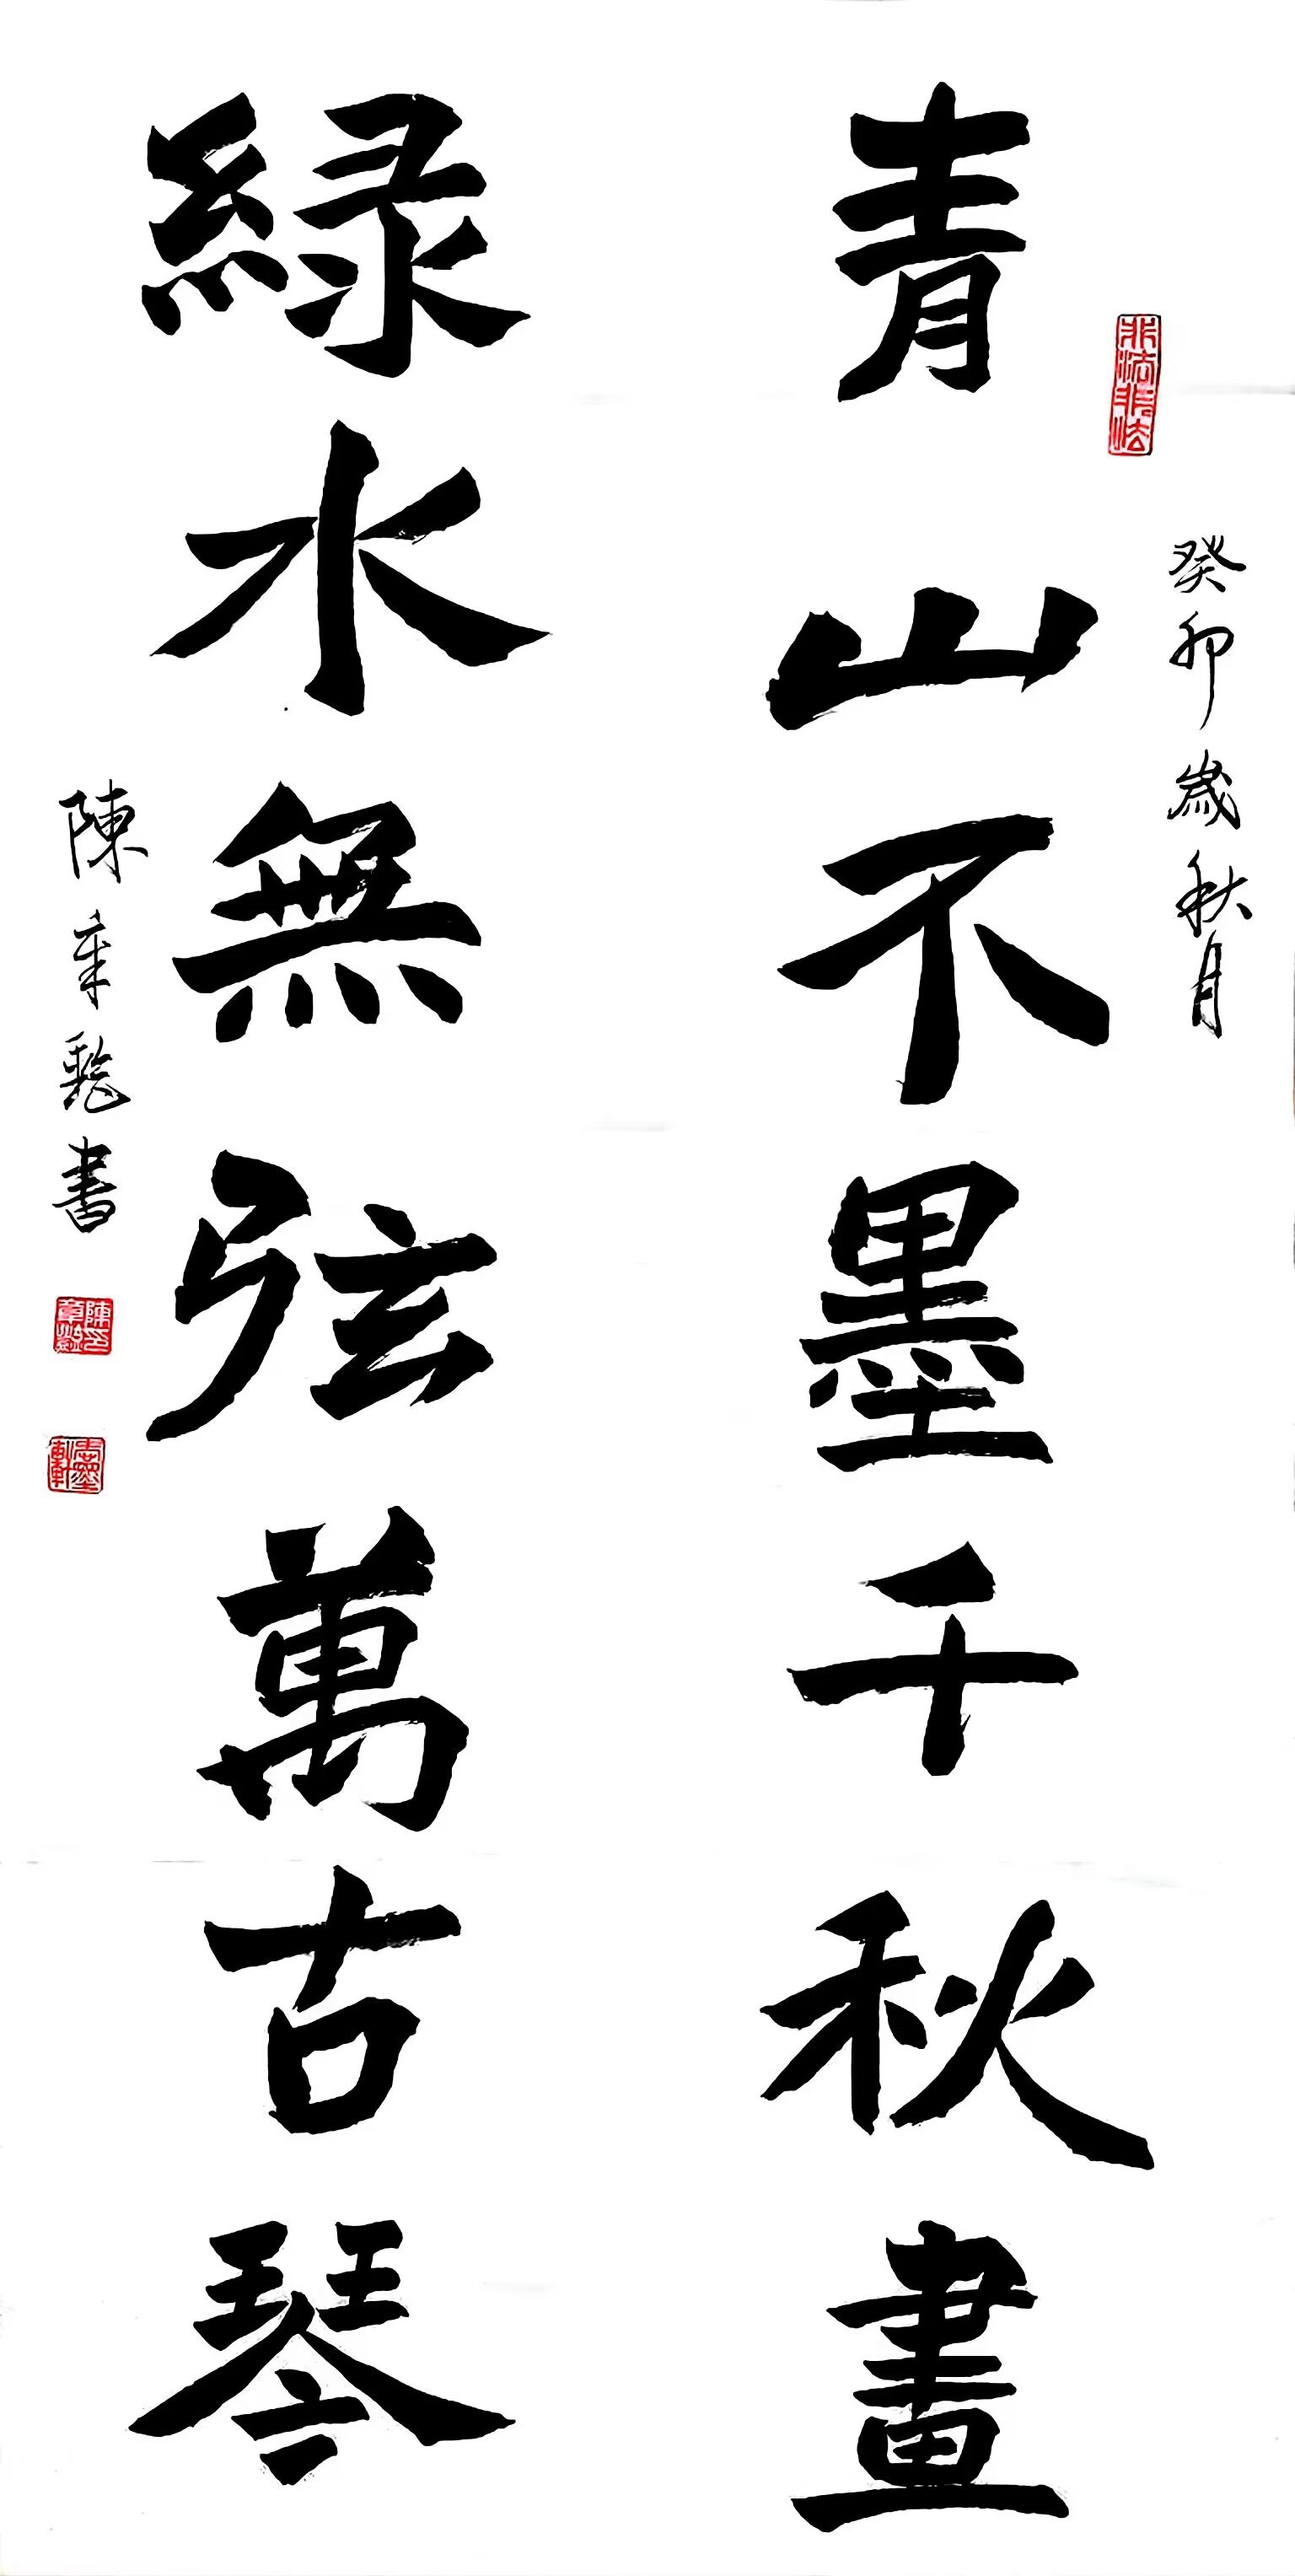 癸卯歲秋月
青山不墨千秋畫
綠水無弦萬古琴
陳章書
非法非法